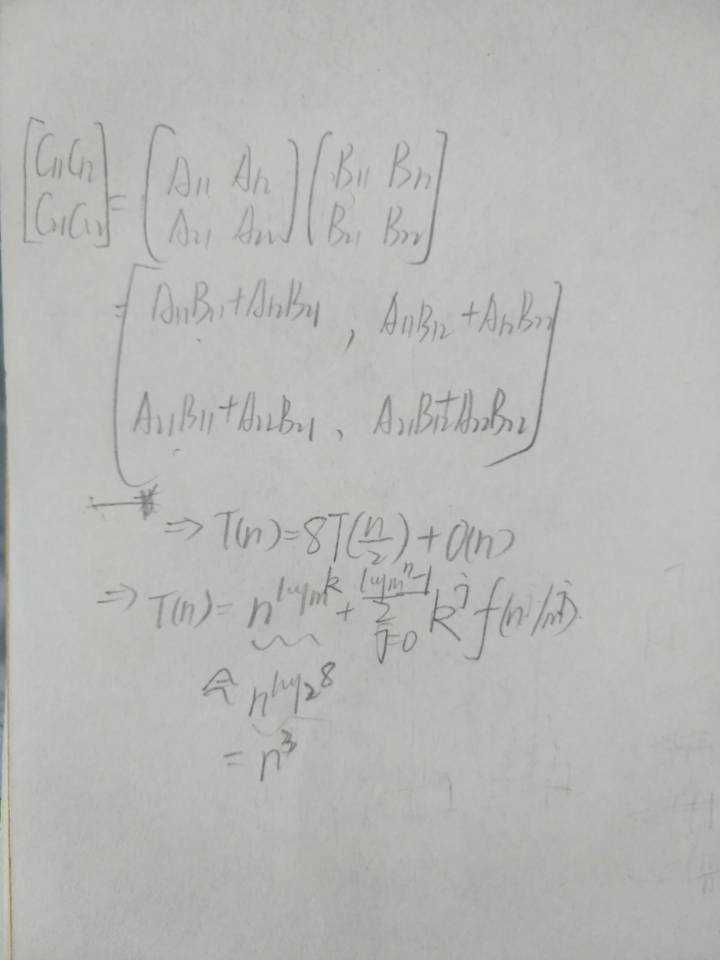 [C₁₁ C₁₂; C₂₁ C₂₂] = (A₁₁ A₁₂; A₂₁ A₂₂) (B₁₁ B₁₂; B₂₁ B₂₂)
= [A₁₁B₁₁+A₁₂B₂₁ , A₁₁B₁₂+A₁₂B₂₂
A₂₁B₁₁+A₂₂B₂₁ , A₂₁B₁₂+A₂₂B₂₂]
⇒ T(n)=8T(n/2)+O(n)
⇒ T(n)= n^(log_m k) + Σ_(j=0)^(log_m n −1) k^j f(n/m^j)
令 n^(log₂ 8)
= n³